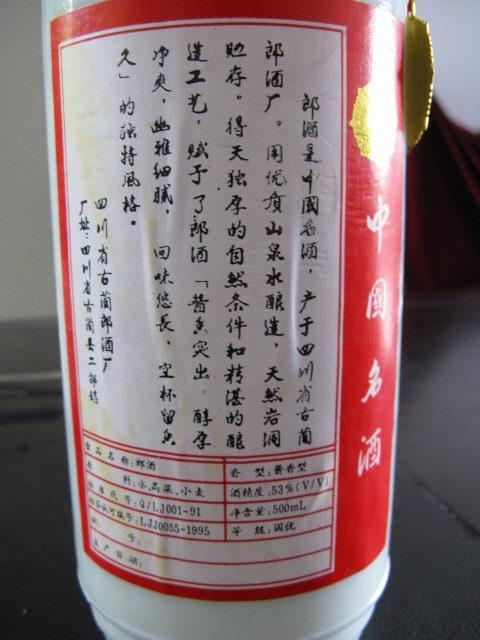 郎酒是中國名酒，产于四川省古蔺
郎酒厂。用优质山泉水酿造，天然岩洞
贮存。得天独厚的自然条件和精湛的酿
造工艺，赋予了郎酒「酱香突出，醇厚
净爽，幽雅细腻，回味悠長，空杯留香
久」的独特風格。
四川省古蔺郎酒厂
厂址：四川省古蔺县二郎
中國名酒
食品名称:郎酒
香型:酱香型
原料:水、高粱、小麦
酒精度:53%(V/V)
标准代号:Q/LJ001-91
净含量:500mL
LJJ0055-1995
等级:国优
批号:
生产日期: